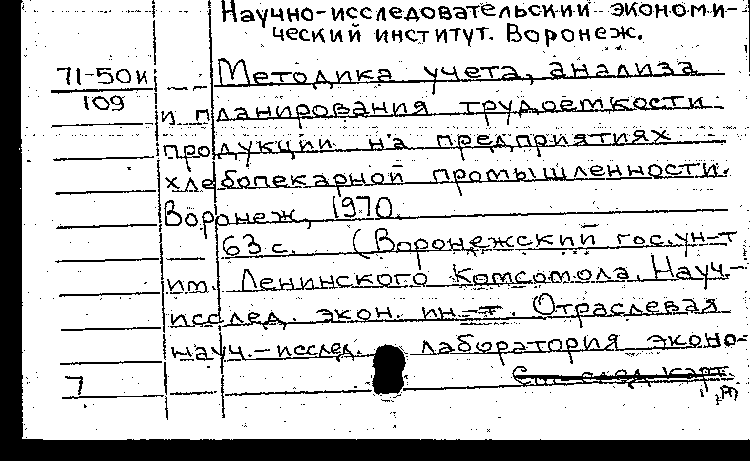 Научно-исследовательский экономи-
ческий институт. Воронеж.
71-50и
109
Методика учета, анализа
и планирования трудоемкости
продукции на предприятиях
хлебопекарной промышленности.
Воронеж, 1970.
63 с. (Воронежский гос. ун-т
им. Ленинского Комсомола. Науч.-
исслед. экон. ин-т. Отраслевая
науч.-исслед. лаборатория эконо-
7 См. след. карт.